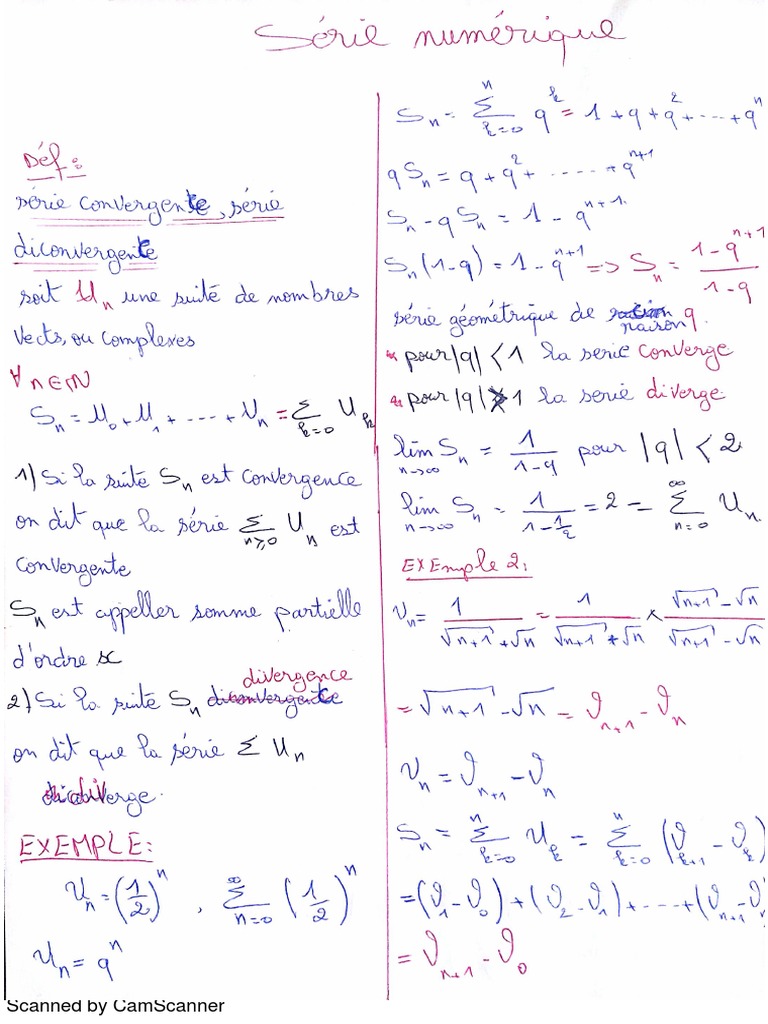 Série numérique
Déf :
série convergente, série
diconvergente
soit Un une suite de nombres
réels, ou complexes
∀ n ∈ ℕ
Sn = U0 + U1 + ---- + Un = Σ_{k=0} Uk
1) Si la suite Sn est convergence
on dit que la série Σ_{n≥0} Un est
convergente
Sn est appeller somme partielle
d'ordre
divergence
2) Si la suite Sn
on dit que la série Σ Un
diverge.
EXEMPLE:
Un = (1/2)^n , Σ_{n=0}^{∞} (1/2)^n
Un = q^n
Sn = Σ_{k=0}^{n} q^k = 1 + q + q^2 + ---- + q^n
q Sn = q + q^2 + ------ + q^{n+1}
Sn - q Sn = 1 - q^{n+1}
Sn (1-q) = 1 - q^{n+1} => Sn = (1-q^{n+1})/(1-q)
série géométrique de raison q.
pour |q| < 1 la serie converge
pour |q| > 1 la serie diverge
lim_{n→∞} Sn = 1/(1-q) pour |q| < 2
lim_{n→∞} Sn = 1/(1-1/2) = 2 = Σ_{n=0}^{∞} Un
EXEmple 2:
Un = 1/(√(n+1) + √n) = 1/(√(n+1) + √n) × (√(n+1) - √n)/(√(n+1) - √n)
= √(n+1) - √n = ϑ_{n+1} - ϑ_n
Un = ϑ_{n+1} - ϑ_n
Sn = Σ_{k=0}^{n} Uk = Σ_{k=0}^{n} (ϑ_{k+1} - ϑ_k)
= (ϑ_1 - ϑ_0) + (ϑ_2 - ϑ_1) + ---- + (ϑ_{n+1} - ϑ_n
= ϑ_{n+1} - ϑ_0
Scanned by CamScanner